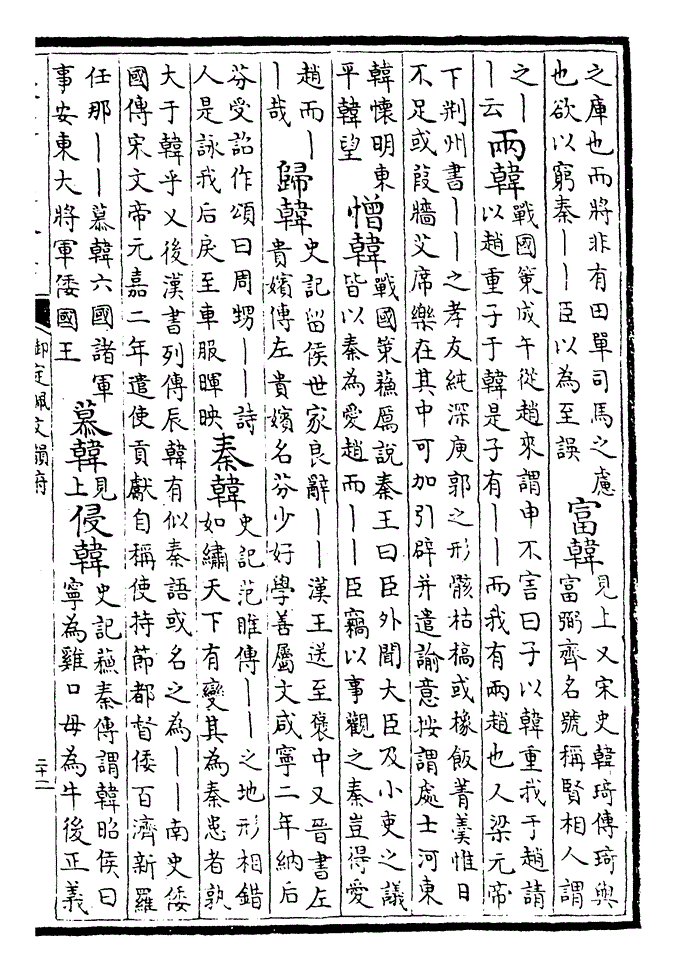 之庫也而將非有田單司馬之慮
也欲以窮秦丨丨臣以為至誤
富韓
見上又宋史韓琦傳琦與
富弼齊名號稱賢相人謂
之丨
丨云
兩韓
戰國策成午從趙來謂申不害曰子以韓重我于趙請
以趙重子于韓是子有丨丨而我有兩趙也又梁元帝
下荆州書丨丨之孝友純深庾郭之形骸枯槁或橡飯菁羹惟日
不足或葭牆艾席樂在其中可加引辟并遣諭意按謂處士河東
韓懷明東
平韓望
憎韓
戰國策蘓厲說秦王曰臣外聞大臣及小吏之議
皆以秦為愛趙而丨丨臣竊以事觀之秦豈得愛
趙而丨
丨哉
歸韓
史記留侯世家良辭丨丨漢王送至褒中又晉書左
貴嬪傳左貴嬪名芬少好學善屬文咸寧二年納后
芬受詔作頌曰周甥丨丨詩
人是詠我后戾至車服暉映
秦韓
史記范睢傳丨丨之地形相錯
如繡天下有變其為秦患者孰
大于韓乎又後漢書列傳辰韓有似秦語或名之為丨丨南史倭
國傳宋文帝元嘉二年遣使貢獻自稱使持節都督倭百濟新羅
任那丨丨慕韓六國諸軍
事安東大將軍倭國王
慕韓
見
上
侵韓
史記蘓秦傳謂韓昭侯曰
寧為雞口毋為牛後正義
御定佩文韻府
二十二